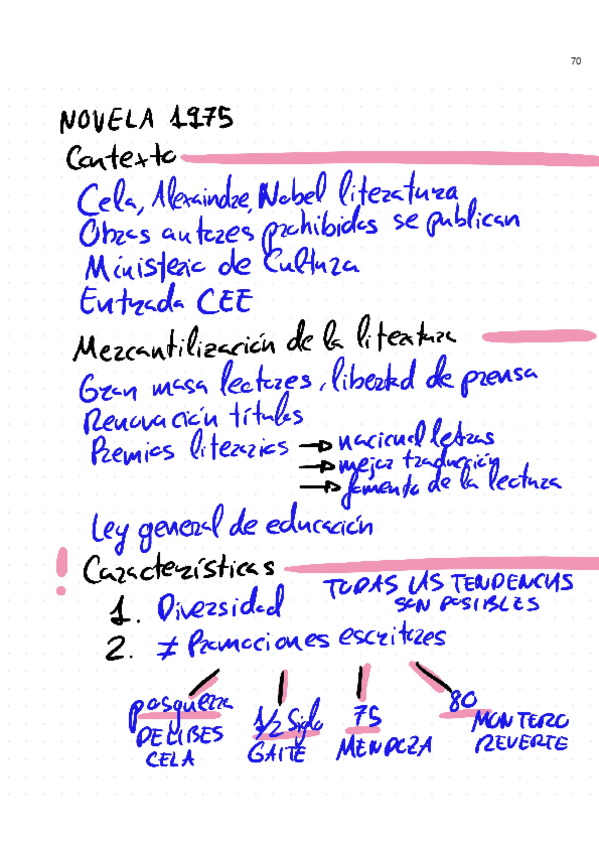 70
NOVELA 1975
Contexto
Cela, Alexaindre, Nobel literatura
Obras autores prohibidos se publican
Ministerio de Cultura
Entrada CEE
Mercantilización de la literatura
Gran masa lectores, libertad de prensa
Renovación títulos
Premios literarios → nacional letras
→ mejor traducción
→ fomento de la lectura
Ley general de educación
! Características
1. Diversidad TODAS LAS TENDENCIAS
SON POSIBLES
2. ≠ Promociones escritores
posguerra 1/2 Siglo 75 80
DELIBES GAITE MENDOZA MONTERO
CELA REVERTE